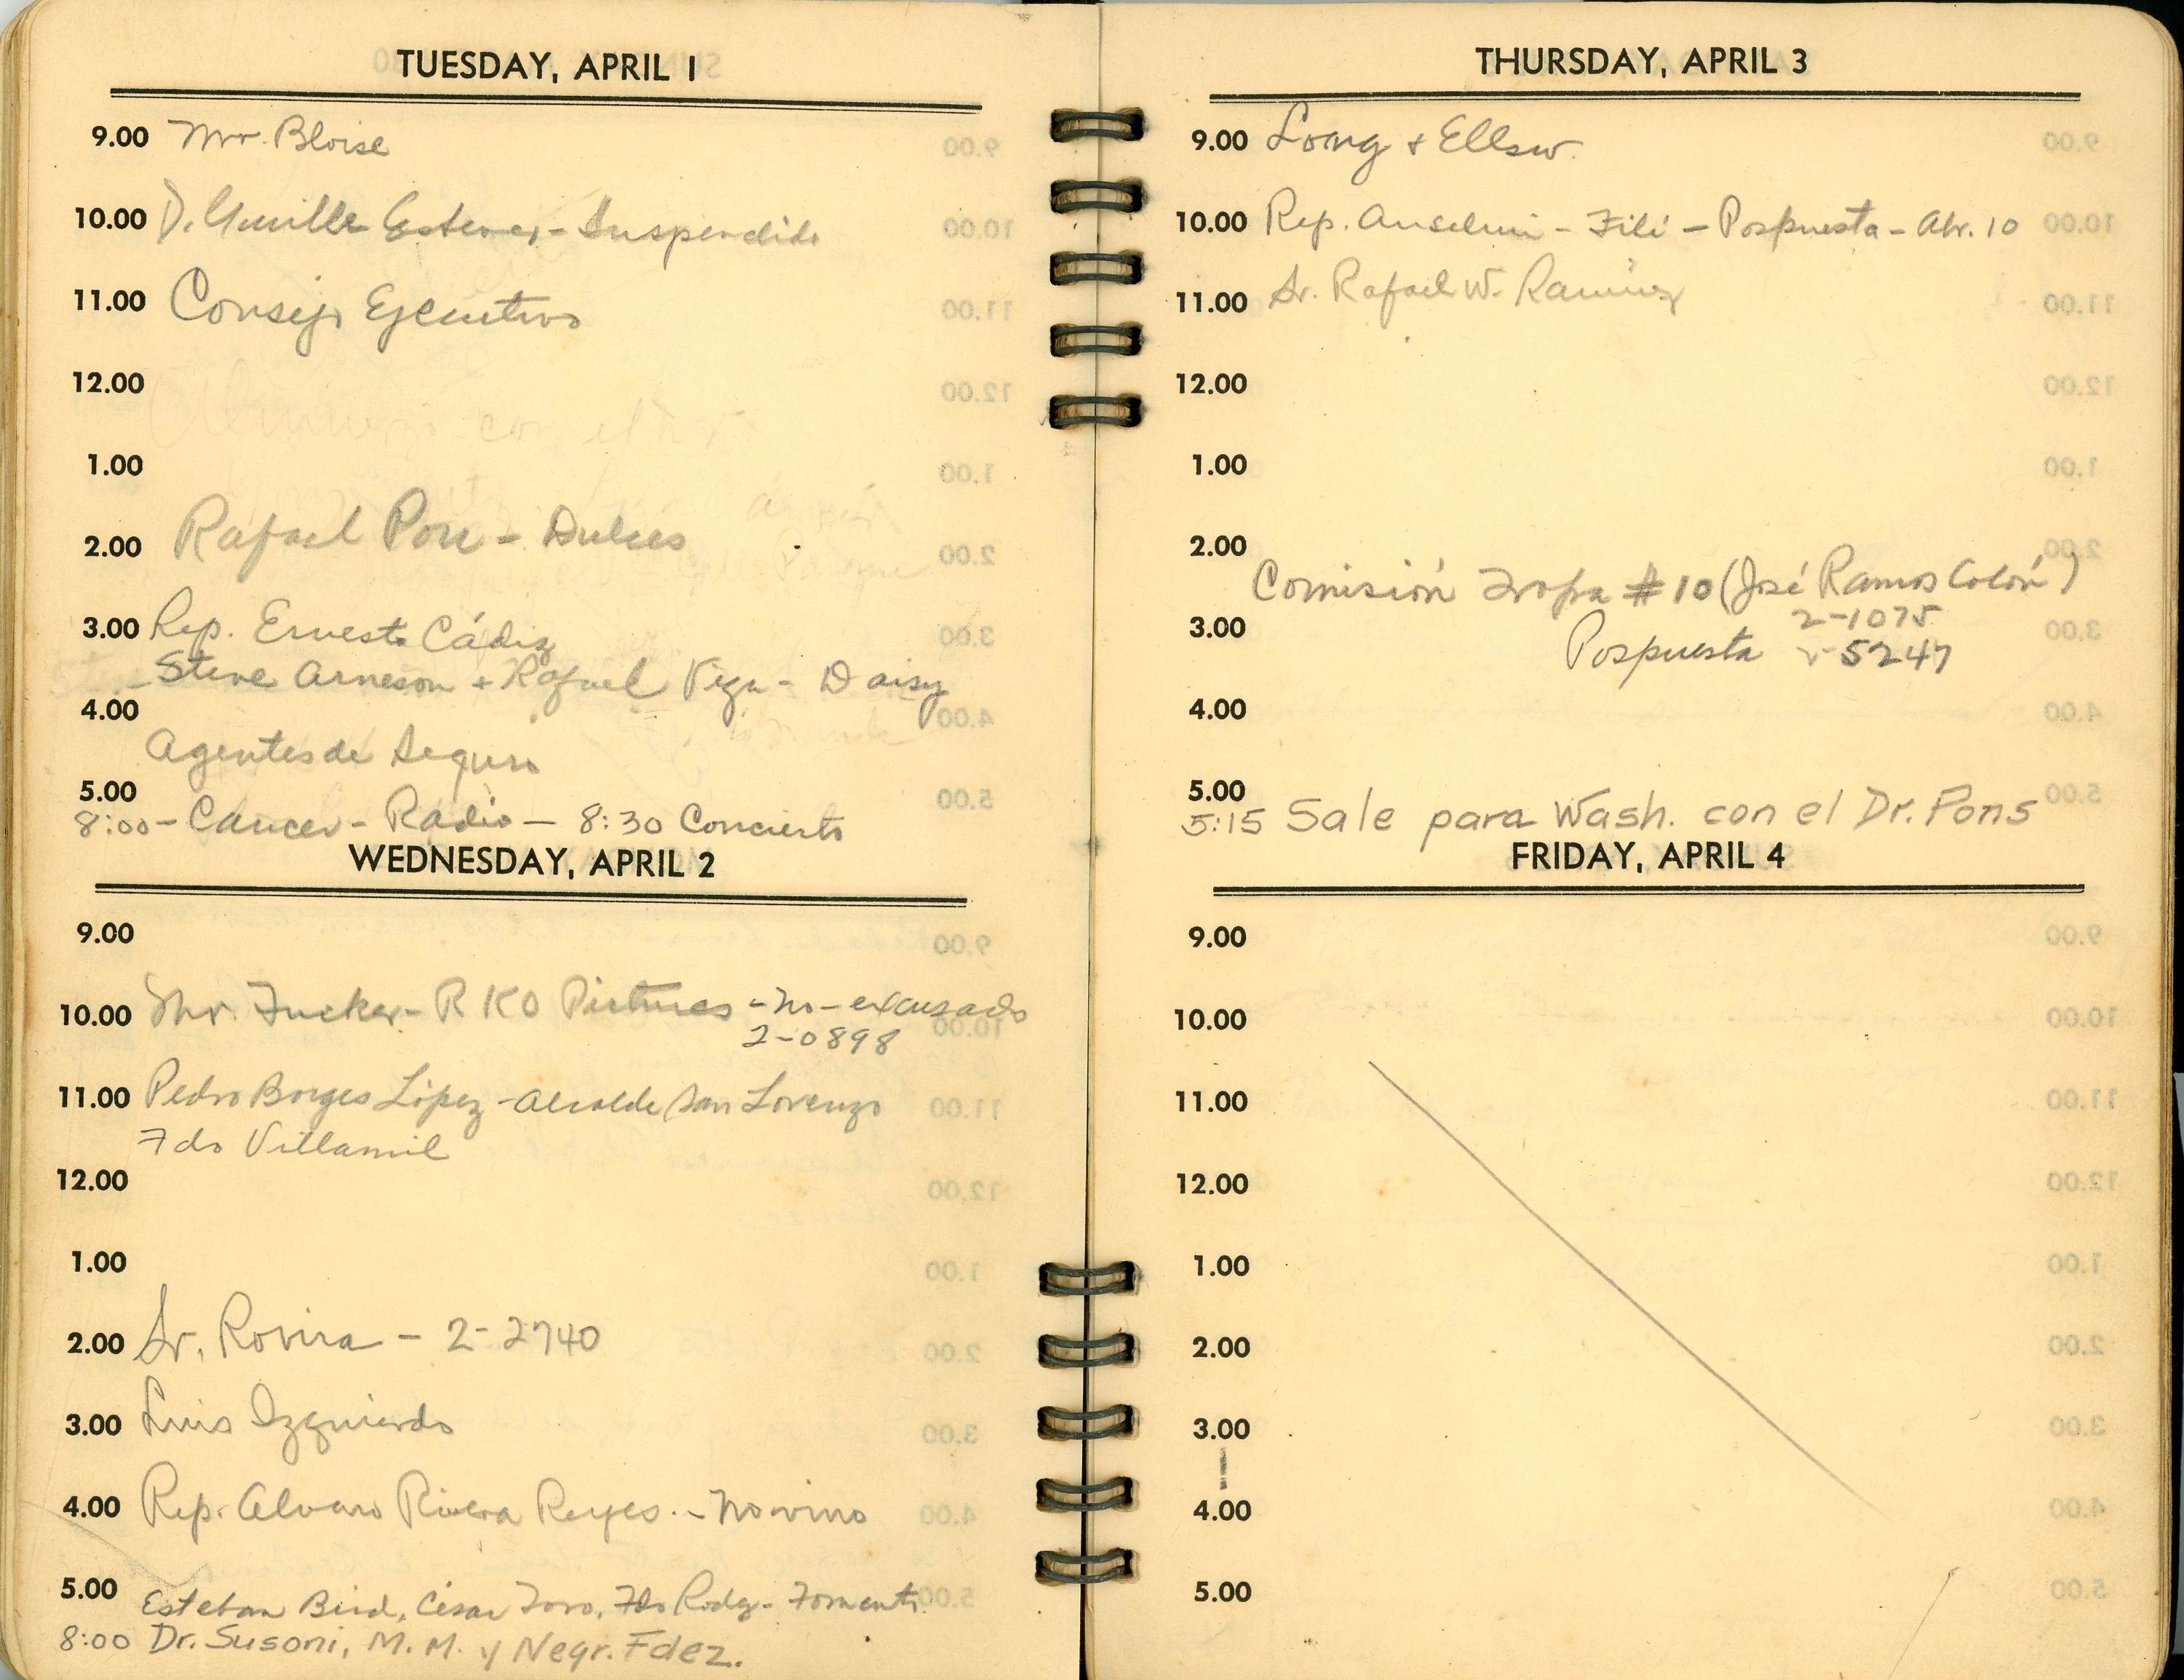 TUESDAY, APRIL 1
9.00 Mr. Bloise
10.00 D. Guille Esteves - Suspendido
11.00 Consejo Ejecutivo
12.00
1.00
Rafael Pou - Dulces
2.00
3.00 Rep. Ernesto Cádiz
Steve Arneson + Rafael Vega - Daisy
4.00
Agentes de Seguro
5.00
8:00 - Cancer - Radio - 8:30 Concierto
WEDNESDAY, APRIL 2
9.00
10.00 Mr. Tucker - RKO Pictures - no - excusado
2-0898
11.00 Pedro Borges López - Alcalde San Lorenzo
Fdo Villamil
12.00
1.00
2.00 Sr. Rovira - 2-2740
3.00 Luis Izquierdo
4.00 Rep. Alvaro Rivera Reyes. - No vino
5.00 Esteban Bird, César Toro, Fdo Rodg - Fomento
8:00 Dr. Susoni, M. M. y Negr. Fdez.
THURSDAY, APRIL 3
9.00 Long + Ellsw.
10.00 Rep. Anselmi - Fili - Pospuesta - Abr. 10
11.00 Sr. Rafael W. Ramírez
12.00
1.00
2.00
Comisión Tropa # 10 (José Ramos Colón)
2-1075
3.00
Pospuesta 5247
4.00
5.00
5:15 Sale para Wash. con el Dr. Pons
FRIDAY, APRIL 4
9.00
10.00
11.00
12.00
1.00
2.00
3.00
4.00
5.00